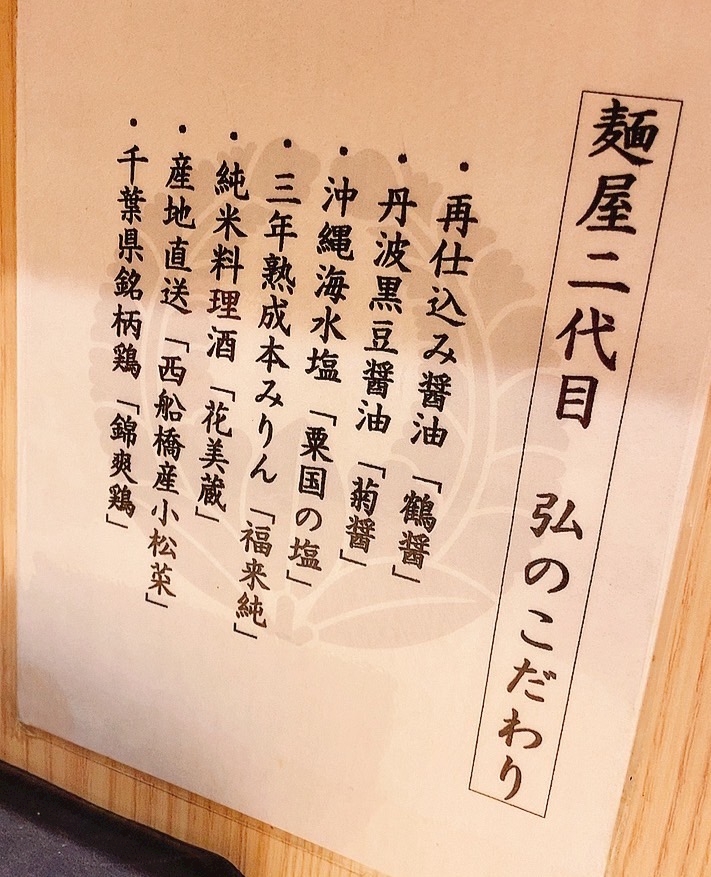 麺屋二代目　弘のこだわり
・再仕込み醤油「鶴醤」
・丹波黒豆醤油「菊醤」
・沖縄海水塩「粟国の塩」
・三年熟成本みりん「福来純」
・純米料理酒「花美蔵」
・産地直送「西船橋産小松菜」
・千葉県銘柄鶏「錦爽鶏」